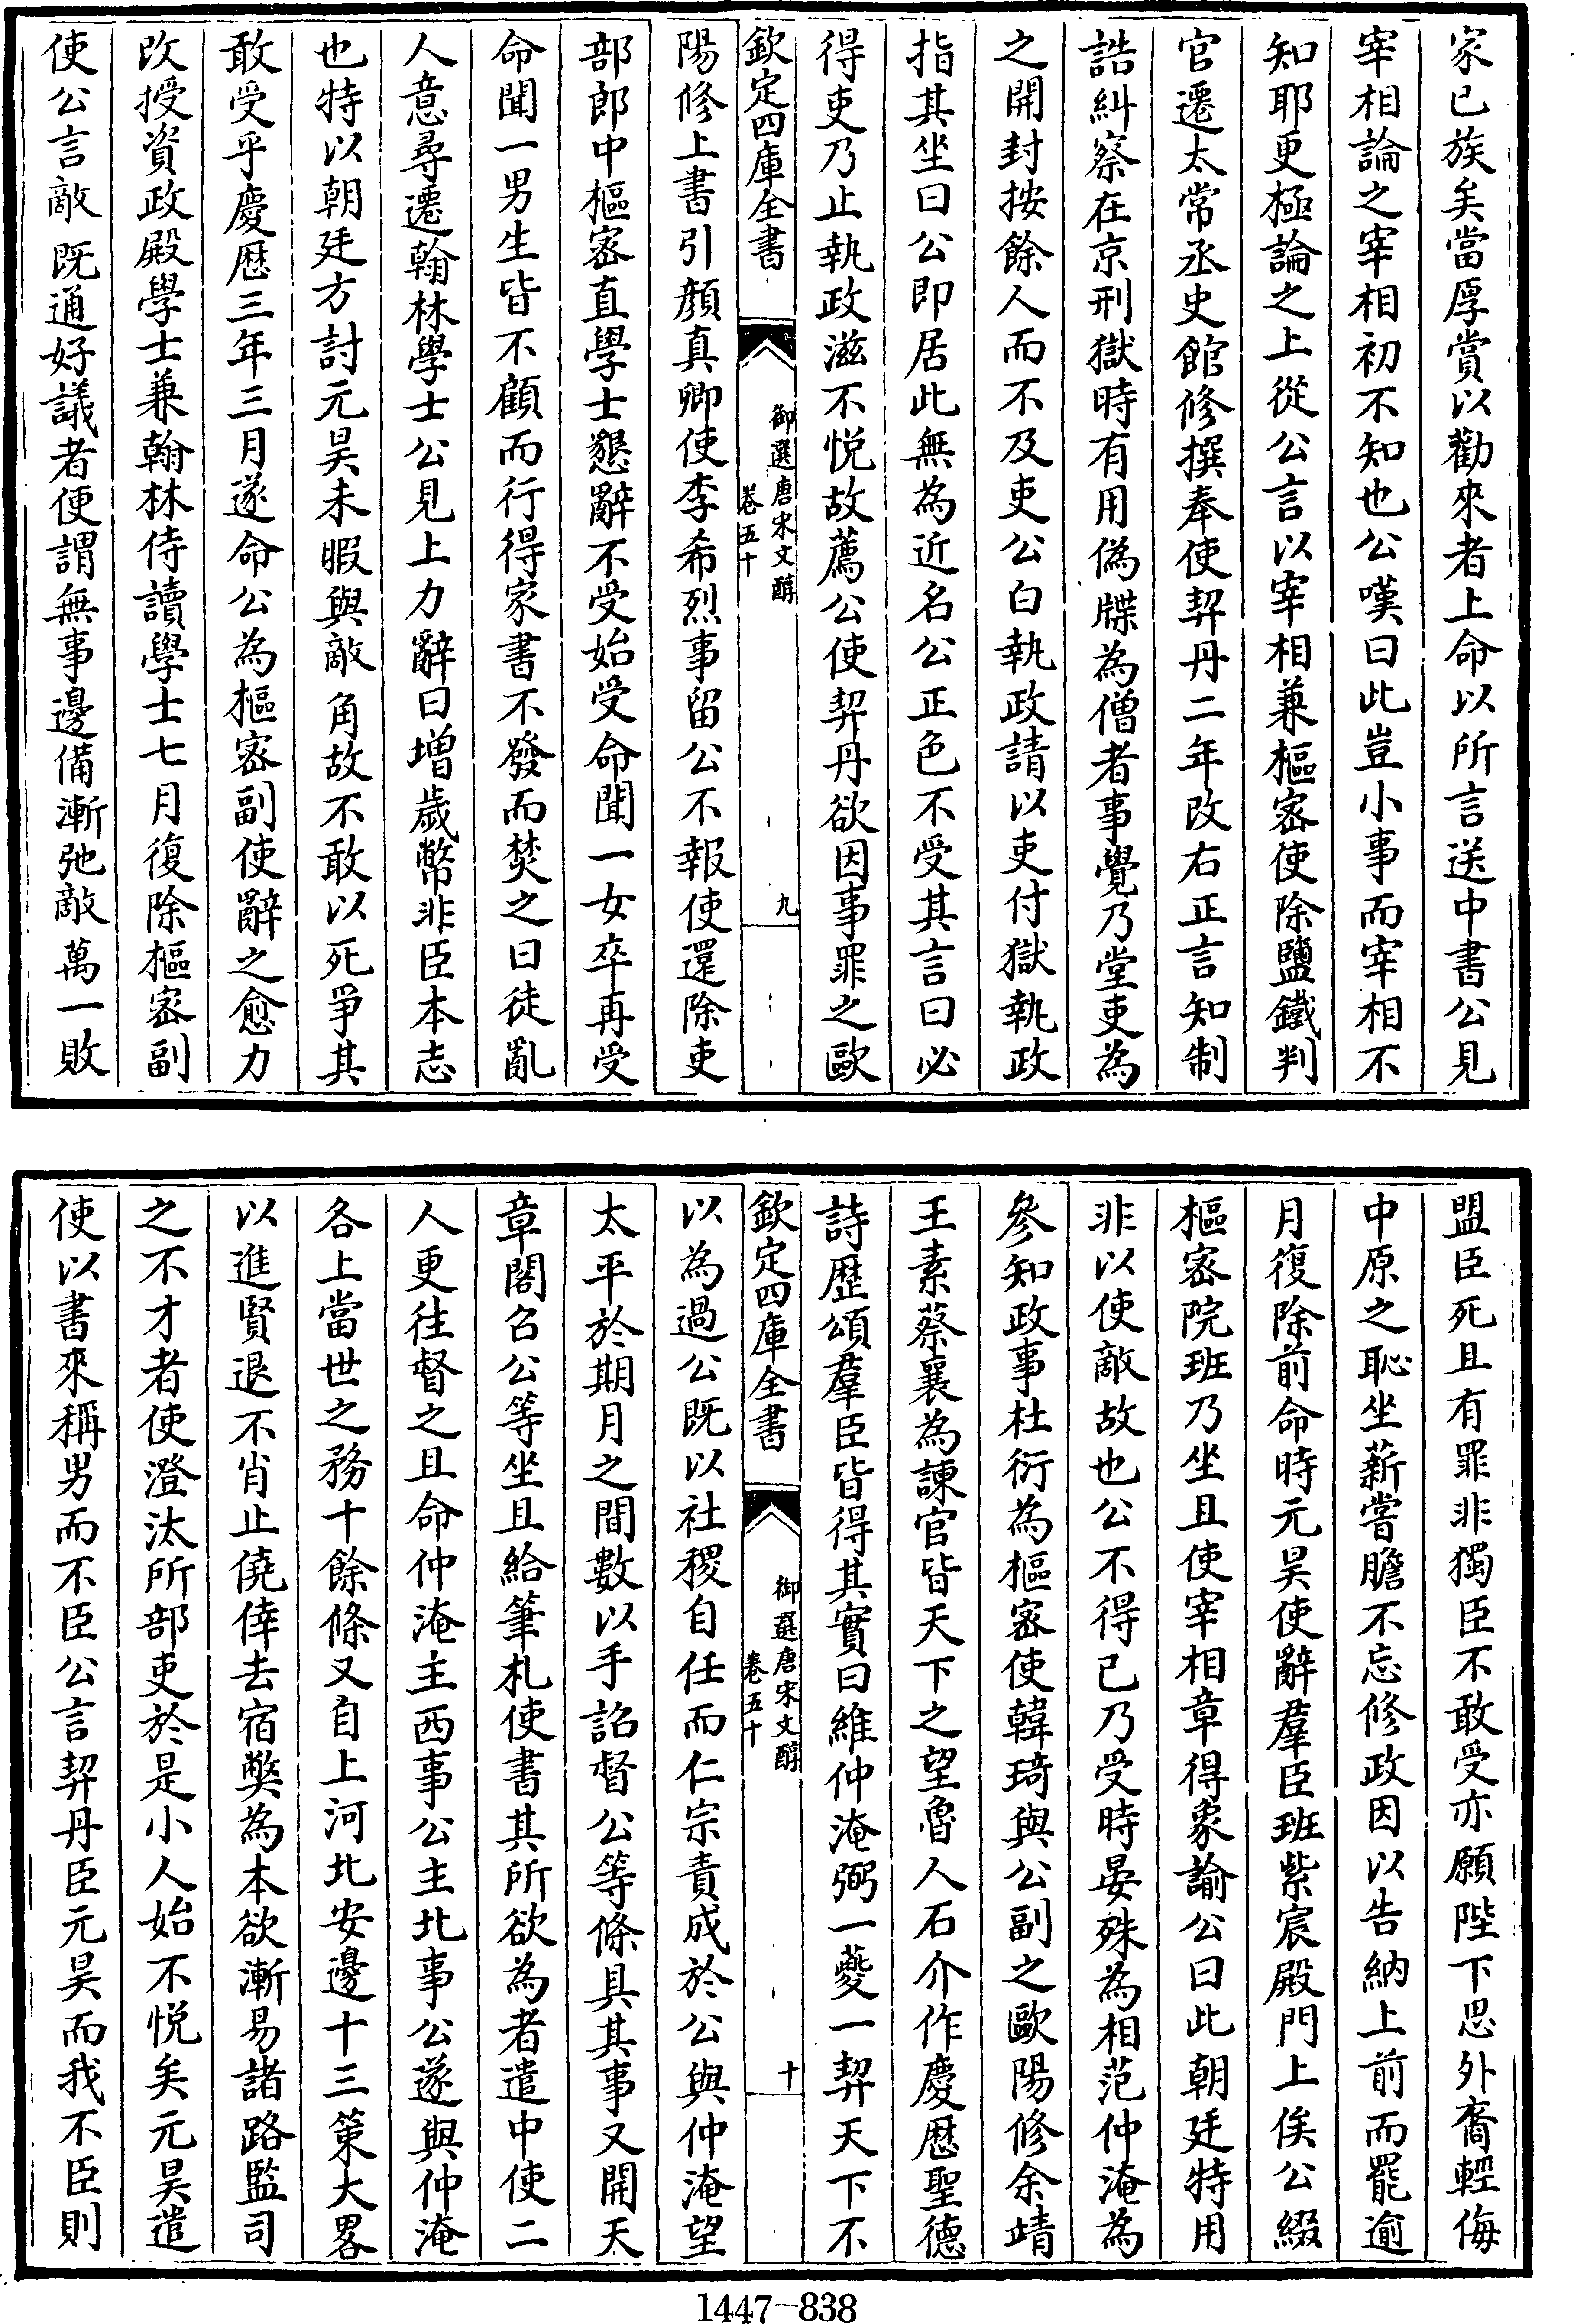 家已族矣當厚賞以勸來者上命以所言送中書公見
宰相論之宰相初不知也公嘆曰此豈小事而宰相不
知耶更極論之上從公言以宰相兼樞密使除鹽鐵判
官遷太常丞史館修撰奉使契丹二年改右正言知制
誥糾察在京刑獄時有用偽牒為僧者事覺乃堂吏為
之開封按餘人而不及吏公白執政請以吏付獄執政
指其坐曰公即居此無為近名公正色不受其言曰必
得吏乃止執政滋不悅故薦公使契丹欲因事罪之歐
欽定四庫全書
御選唐宋文醇
卷五十
九
陽修上書引顏真卿使李希烈事留公不報使還除吏
部郎中樞密直學士懇辭不受始受命聞一女卒再受
命聞一男生皆不顧而行得家書不發而焚之曰徒亂
人意尋遷翰林學士公見上力辭曰增歲幣非臣本志
也特以朝廷方討元昊未暇與敵角故不敢以死爭其
敢受乎慶歷三年三月遂命公為樞密副使辭之愈力
改授資政殿學士兼翰林侍讀學士七月復除樞密副
使公言敵既通好議者便謂無事邊備漸弛敵萬一敗
盟臣死且有罪非獨臣不敢受亦願陛下思外裔輕侮
中原之恥坐薪嘗膽不忘修政因以告納上前而罷逾
月復除前命時元昊使辭羣臣班紫宸殿門上俟公綴
樞密院班乃坐且使宰相章得象諭公曰此朝廷特用
非以使敵故也公不得已乃受時晏殊為相范仲淹為
參知政事杜衍為樞密使韓琦與公副之歐陽修余靖
王素蔡襄為諫官皆天下之望魯人石介作慶歷聖德
詩歷頌羣臣皆得其實曰維仲淹弼一夔一契天下不
欽定四庫全書
御選唐宋文醇
卷五十
十
以為過公既以社稷自任而仁宗責成於公與仲淹望
太平於期月之間數以手詔督公等條具其事又開天
章閣召公等坐且給筆札使書其所欲為者遣中使二
人更往督之且命仲淹主西事公主北事公遂與仲淹
各上當世之務十餘條又自上河北安邊十三策大畧
以進賢退不肖止僥倖去宿弊為本欲漸易諸路監司
之不才者使澄汰所部吏於是小人始不悅矣元昊遣
使以書來稱男而不臣公言契丹臣元昊而我不臣則
1447-838